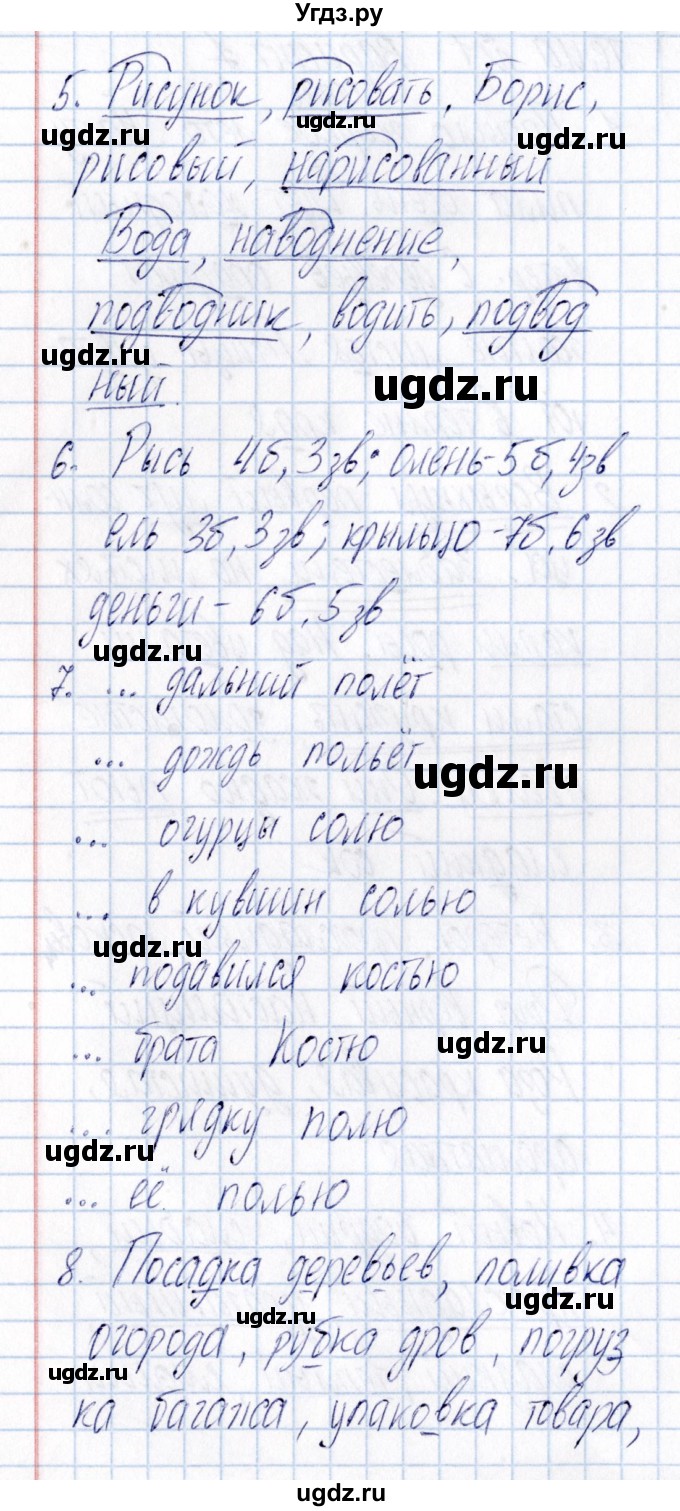 Угдз.ру
5. Рисунок, рисовать, Борис,
ugdz.ru ugdz.ru ugdz.ru
рисовый, нарисованный
Вода, наводнение,
подводник, водить, подвод
ugdz.ru ugdz.ru
ный.
6. Рысь 4б, 3зв; олень-5б, 4зв
ель 3б, 3зв; крыльцо-7б, 6зв
деньги - 6б, 5зв
ugdz.ru
7. ... дальний полёт
... дождь польёт
ugdz.ru
... огурцы солю
... в кувшин солью
ugdz.ru
... подавился костью
... брата Костю
ugdz.ru
... грядку полю
ugdz.ru
... её полью
8. Посадка деревьев, поливка
ugdz.ru ugdz.ru
огорода, рубка дров, погруз
ugdz.ru
ка багажа, упаковка товара,
ugdz.ru